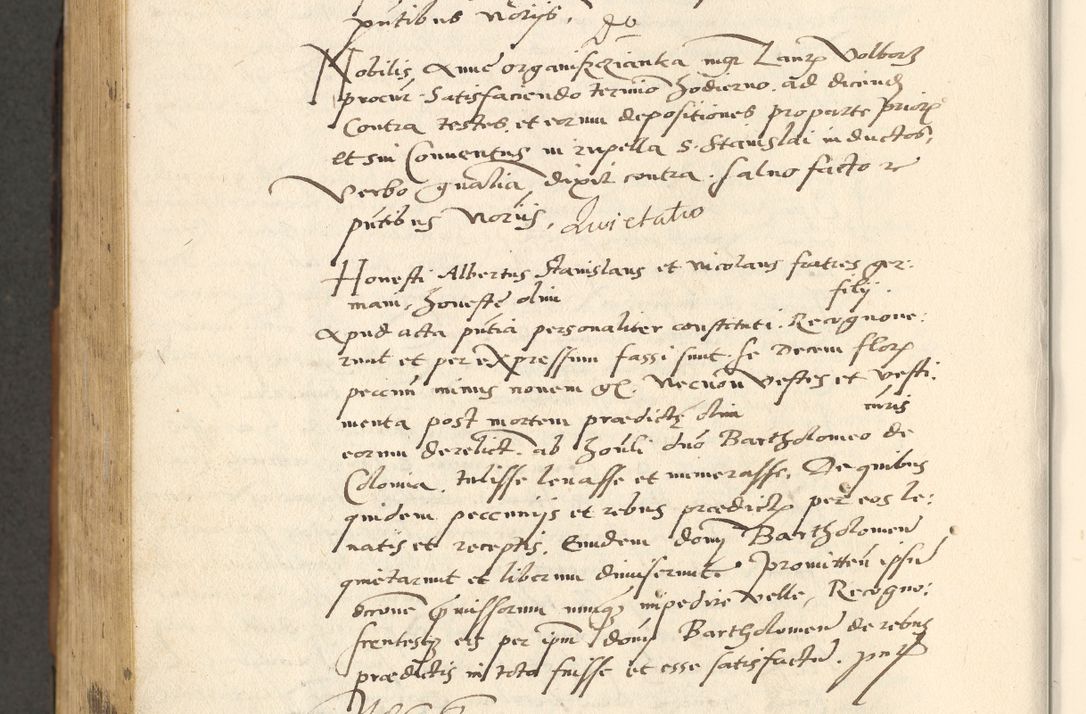 pntibus Noriis.
Nobilis Anne organiszczanka mgr Laur Volborz
procur. Satisfaciendo termino hodierno ad dicend
Contra testes et eorum depositiones pro parte prioris
et sui Conventus in rupella S. Stanislai inductos,
Verbo gnalia dixit contra. salvo facto r
pntibus Noriis. Quietatio
Honesti Albertus Stanislaus et Nicolaus fratres ger:
mani, honeste olim filij.
Apud acta pntia personaliter constituti. Recognove:
runt et per expressum fassi sunt se Decem flor
peccun minus novem gr. Necnon vestes et vesti:
menta post mortem prædicte olim mris
eorum derelict. ab honli dno Bartholomeo de
Colonia, tulisse levasse et numerasse. De quibus
quidem peccuniis et rebus prædict per eos le:
vatis et receptis. Eundem dom Bartholomeu
quietarunt et liberum dimiserunt. Promitten ipsu
roone pmissorum nunq impedire velle, Recogno:
scentesq eis per ipm dom Bartholomeu de rebus
prædictis in toto fuisse et esse satisfactu.